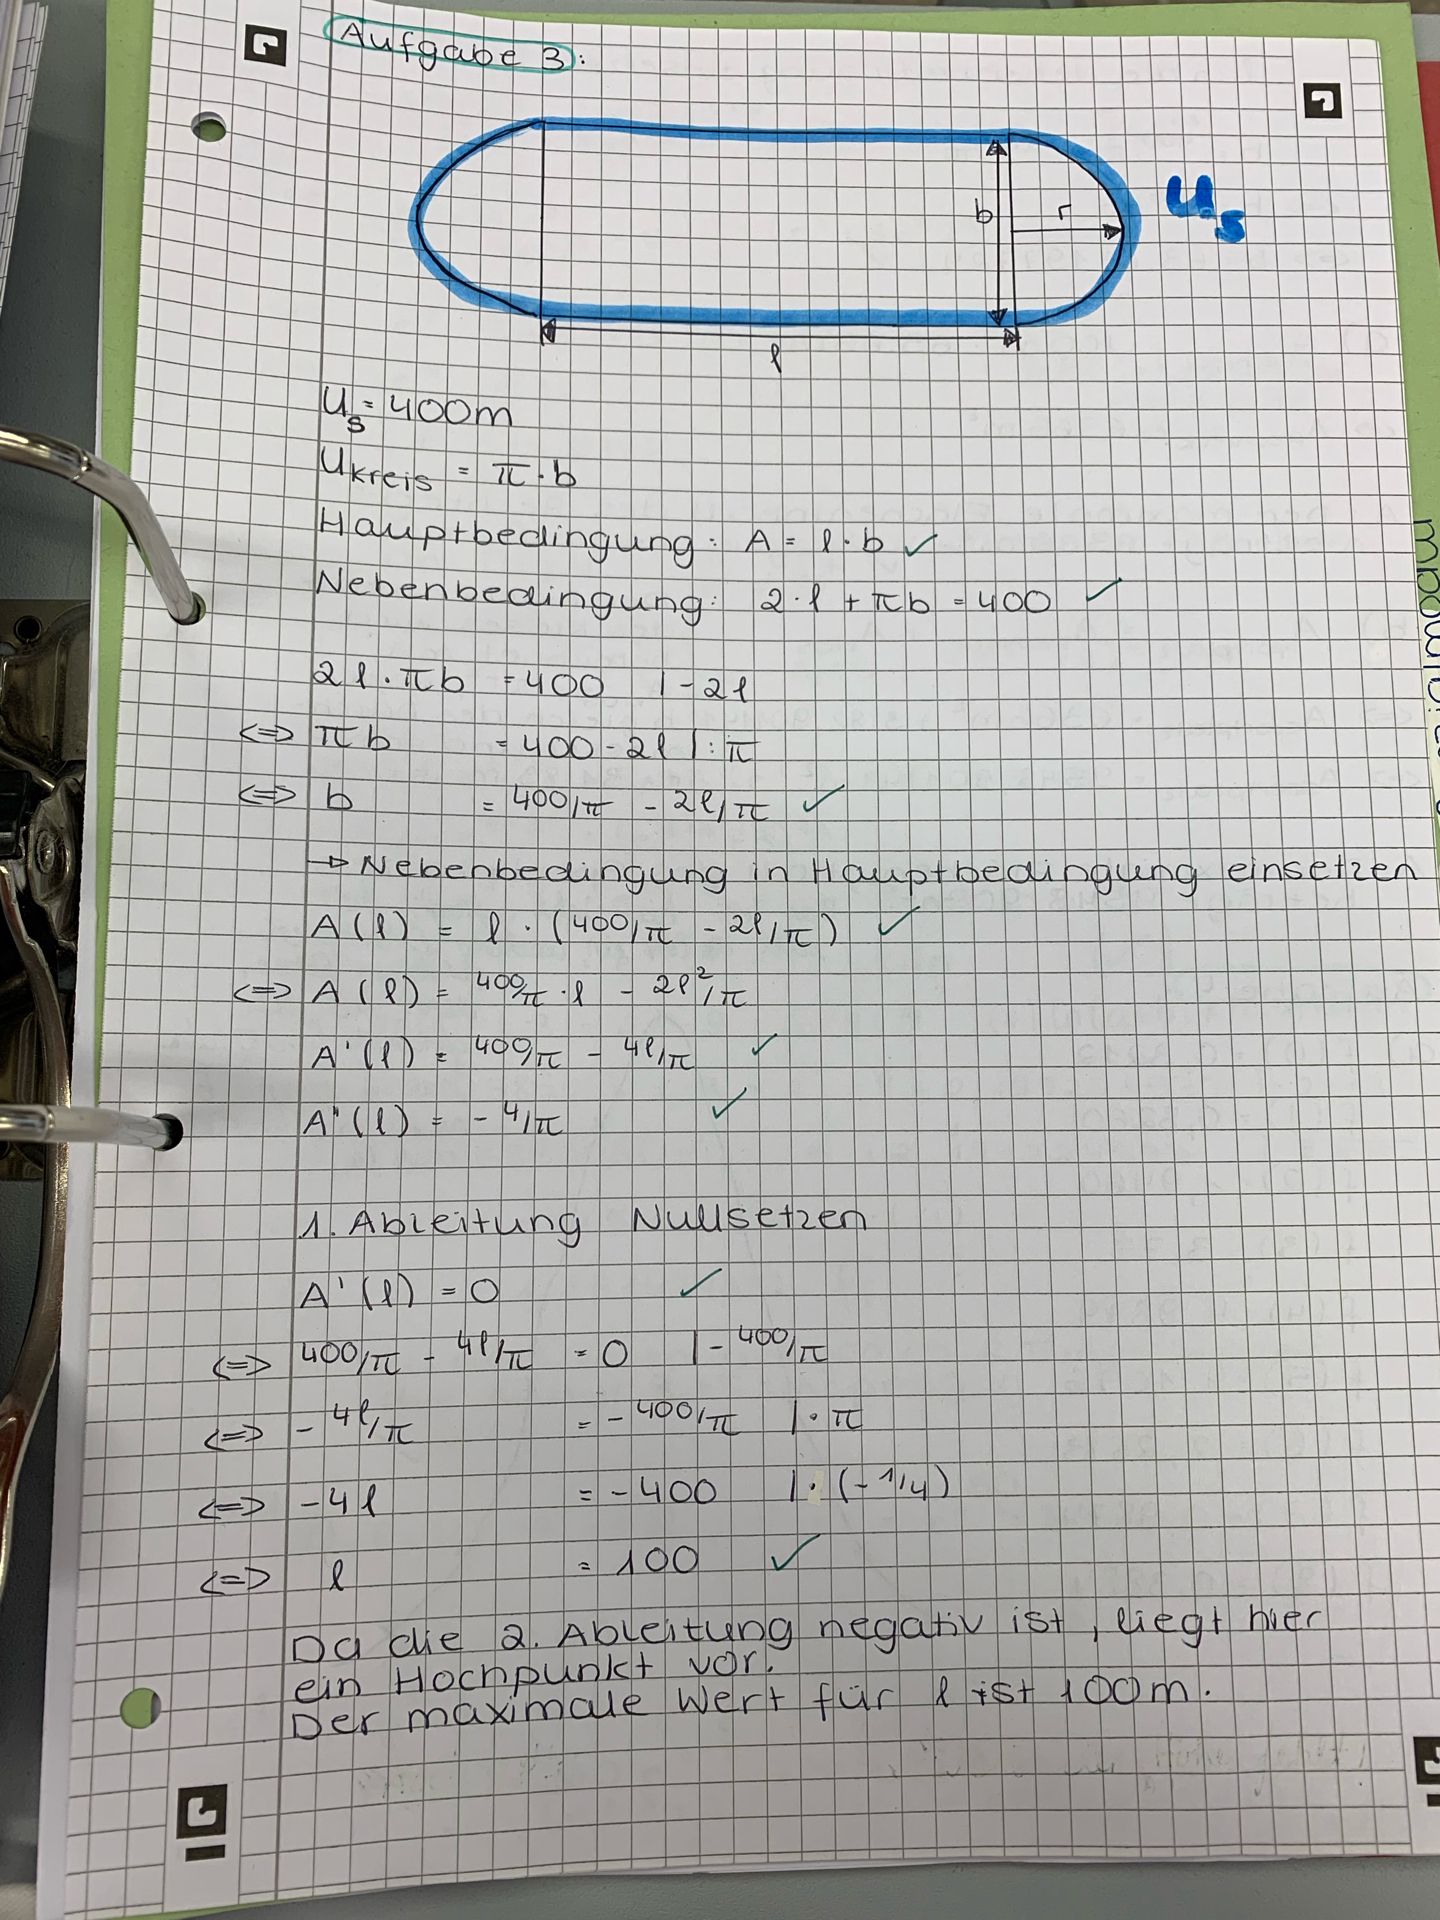 Aufgabe 3:
b
r
Us
l
Us = 400m
Ukreis = π · b
Hauptbedingung: A = l · b ✓
Nebenbedingung: 2 · l + πb = 400 ✓
2l · πb = 400 | - 2l
<=> πb = 400 - 2l | : π
<=> b = 400/π - 2l/π ✓
→ Nebenbedingung in Hauptbedingung einsetzen
A(l) = l · (400/π - 2l/π) ✓
<=> A(l) = 400/π · l - 2l²/π
A'(l) = 400/π - 4l/π ✓
A''(l) = - 4/π ✓
1. Ableitung Nullsetzen
A'(l) = 0 ✓
<=> 400/π - 4l/π = 0 | - 400/π
<=> - 4l/π = - 400/π | · π
<=> -4l = -400 | · (- 1/4)
<=> l = 100 ✓
Da die 2. Ableitung negativ ist, liegt hier
ein Hochpunkt vor.
Der maximale Wert für l ist 100m.